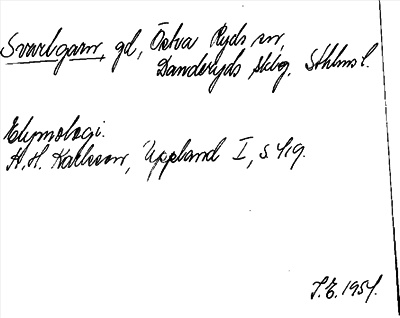 Svartgarn, gd, Östra Ryds sn,
Danderyds skbg. Sthlms l.
Etymologi.
H. H. Karlsson, Uppland I, s. 419.
J. E. 1954.